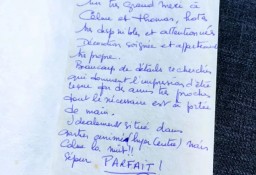 Un très grand merci à
Céline et Thomas, hôtes
très disponibles et attentionnés
Décoration soignée et appartement
très propre.
Beaucoup de détails recherchés
qui donnent l'impression d'être
chez des amis très proches
dont le nécessaire est à portée
de main.
Idéalement situé dans
(hyper centre) mais
Calme la nuit!!
Séjour PARFAIT!